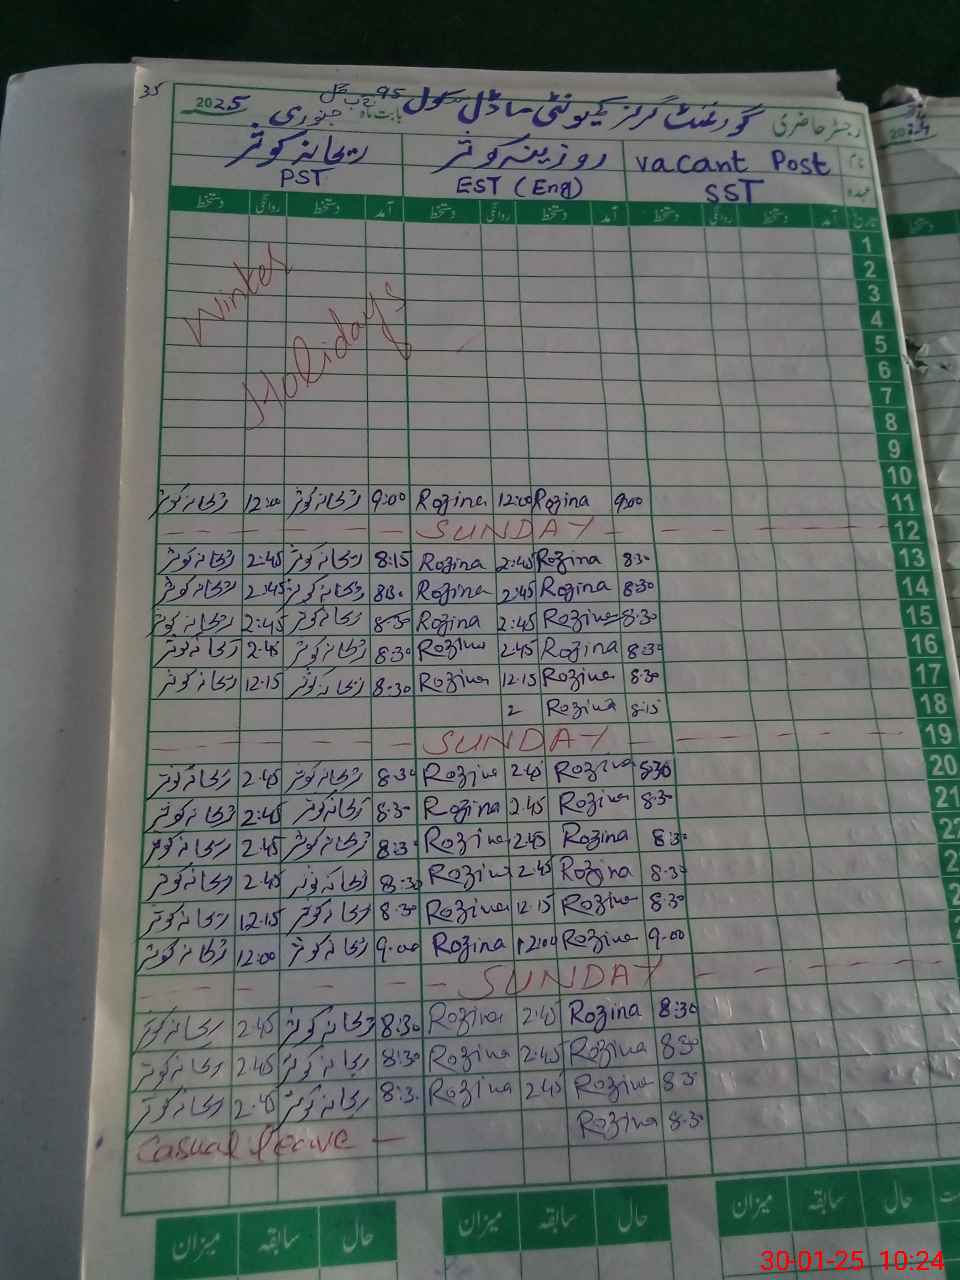 35
رجسٹر حاضری گورنمنٹ گرلز کمیونٹی ماڈل سکول 95 بابت ماہ جنوری 2025
نام vacant Post روزینہ کوثر ریحانہ کوثر
عہدہ SST EST (Eng) PST
تاریخ آمد دستخط روانگی دستخط آمد دستخط روانگی دستخط آمد دستخط روانگی دستخط
1
2
3
4
5
6
7
8
9
10
Winter
Holidays
ریحانہ کوثر 12:00 ریحانہ کوثر 9:00 Rozina 12:00 Rozina 9:00 11
SUNDAY 12
ریحانہ کوثر 2:45 ریحانہ کوثر 8:15 Rozina 2:45 Rozina 8:30 13
ریحانہ کوثر 2:45 ریحانہ کوثر 8:30 Rozina 2:45 Rozina 8:30 14
ریحانہ کوثر 2:45 ریحانہ کوثر 8:30 Rozina 2:45 Rozina 8:30 15
ریحانہ کوثر 2:45 ریحانہ کوثر 8:30 Rozina 2:45 Rozina 8:30 16
ریحانہ کوثر 12:15 ریحانہ کوثر 8:30 Rozina 12:15 Rozina 8:30 17
2 Rozina 8:15 18
SUNDAY 19
ریحانہ کوثر 2:45 ریحانہ کوثر 8:30 Rozina 2:45 Rozina 8:30 20
ریحانہ کوثر 2:45 ریحانہ کوثر 8:30 Rozina 2:45 Rozina 8:30 21
ریحانہ کوثر 2:45 ریحانہ کوثر 8:30 Rozina 2:45 Rozina 8:30 22
ریحانہ کوثر 2:45 ریحانہ کوثر 8:30 Rozina 2:45 Rozina 8:30 2
ریحانہ کوثر 12:15 ریحانہ کوثر 8:30 Rozina 12:15 Rozina 8:30 2
ریحانہ کوثر 12:00 ریحانہ کوثر 9:00 Rozina 12:00 Rozina 9:00
SUNDAY
ریحانہ کوثر 2:45 ریحانہ کوثر 8:30 Rozina 2:45 Rozina 8:30
ریحانہ کوثر 2:45 ریحانہ کوثر 8:30 Rozina 2:45 Rozina 8:30
ریحانہ کوثر 2:45 ریحانہ کوثر 8:30 Rozina 2:45 Rozina 8:30
Casual leave Rozina 8:30
حال سابقہ میزان حال سابقہ میزان حال سابقہ میزان
30-01-25 10:24